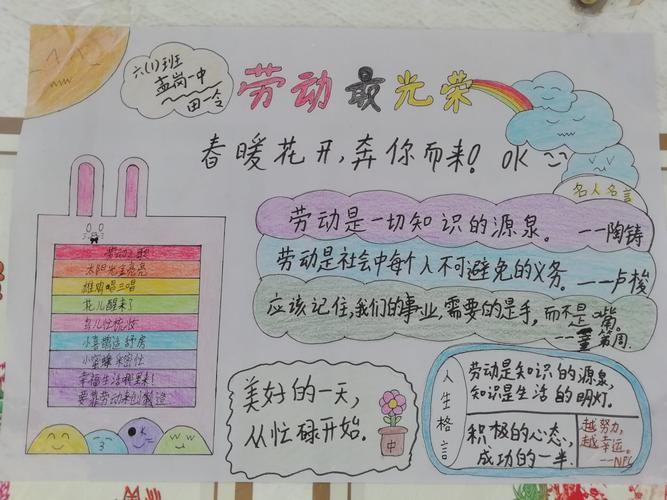 六(1)班
孟岗一中
田一令
劳动最光荣
春暖花开,奔你而来! OK
名人名言
劳动是一切知识的源泉。 ——陶铸
劳动是社会中每个人不可避免的义务。——卢梭
应该记住,我们的事业,需要的是手,而不是嘴。
——童第周.
劳动之歌
太阳光金亮亮
雄鸡唱三唱
花儿醒来了
鸟儿忙梳妆
小喜鹊造新房
小蜜蜂采蜜忙
幸福生活哪里来!
要靠劳动来创造
美好的一天,
从忙碌开始.
中
人生格言
劳动是知识的源泉,
知识是生活的明灯.
积极的心态,
成功的一半.
越努力,
越幸运。